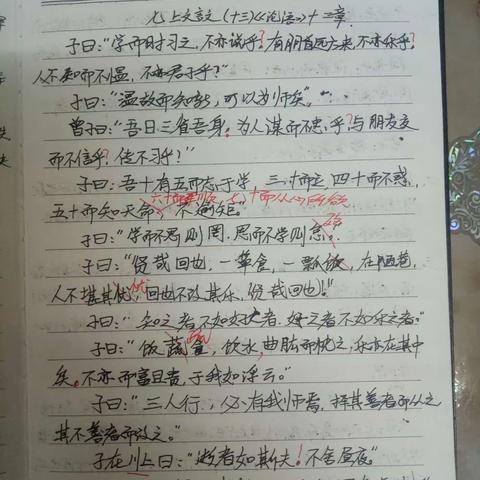 七上文言文(十三)《论语》十二章
子曰:"学而时习之,不亦说乎?有朋自远方来,不亦乐乎?
人不知而不愠,不亦君子乎?"
子曰:"温故而知新,可以为师矣"。
曾子曰:"吾日三省吾身,为人谋而不忠乎?与朋友交
而不信乎?传不习乎?"
子曰:吾十有五而志于学,三十而立,四十而不惑,
五十而知天命,六十而耳顺,七十而从心所欲,不逾矩。"
子曰:"学而不思则罔,思而不学则怠。殆
子曰:"贤哉回也,一箪食,一瓢饮,在陋巷,
人不堪其忧,忧回也不改其乐,贤哉回也!"
子曰:"知之者不如好之者,好之者不如乐之者。"
子曰:"饭蔬食,饮水,曲肱而枕之,乐亦在其中
矣。不亦而富且贵,于我如浮云。"
子曰:"三人行,必有我师焉,择其善者而从之
其不善者而改之。"
子在川上曰:"逝者如斯夫!不舍昼夜。"